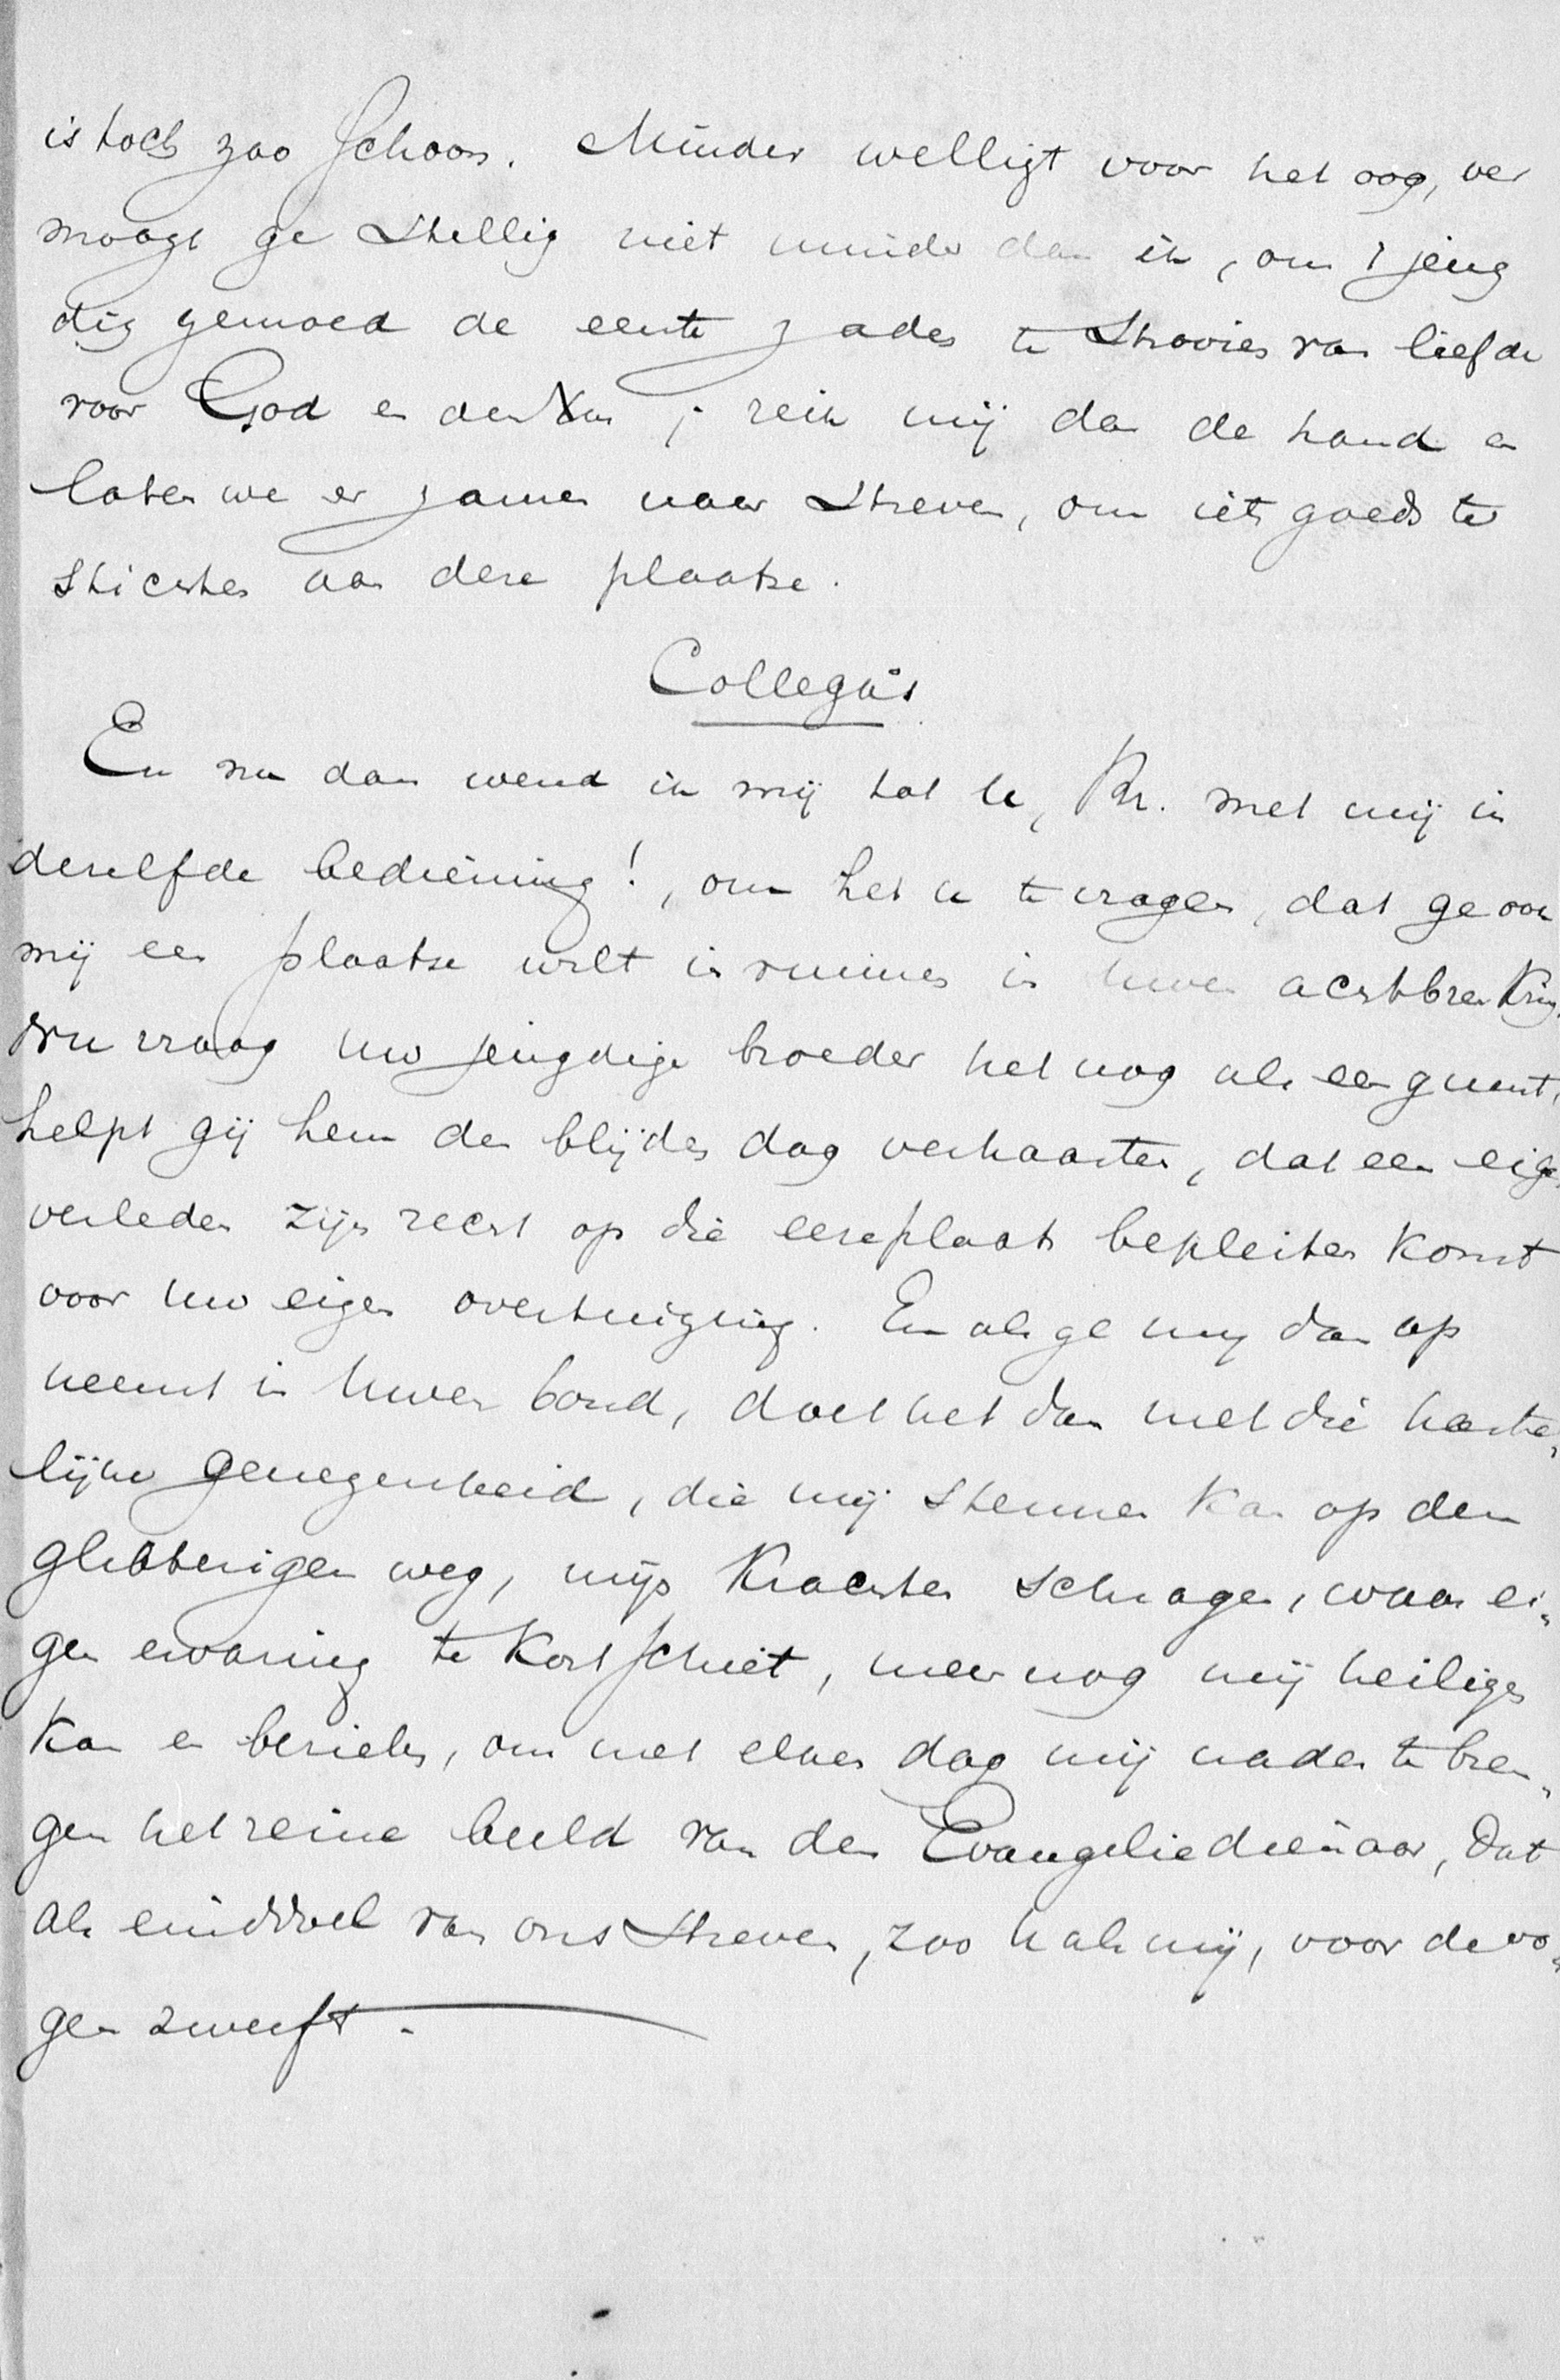 is toch zoo schoon. Minder welligt voor het oog, ver
moogt ge stellig niet minder dan ik, om 't jeug
dig gemoed de eerste zaden te strooien van liefde
voor God en den ; reik mij dan de hand en
laten we er zamen naar streven, om iets goeds te
stichten aan dere plaatse.
Collega's
En nu dan wend ik mij tot u, Br. met mij in
derselfde bediening!, om het u te vragen, dat ge ook
mij een plaatse wilt inruimen in uwen achtbren Kring.
Nu vraag uw jeugdige broeder het nog als een gunst,
helpt gij hem den blijden dag verhaasten, dat een eigen
verleden zijn recht op die eereplaats bepleiten komt
voor uw eigen overtuiging. En als ge mij dan op
neemt in uwen bond, doet het dan met die harte„
lijke genegenheid, die mij steunen kan op den
glibberigen weg, mijn Krachten schragen, waar ei„
gen ervaring te Kort schiet, meer nog mij heiligen
Kan en bezielen, om met elken dag mij nader te bren„
gen het reine beeld van den Evangeliedienaar, dat
als einddoel van ons streven, zoo u als mij, voor de oo„
gen zweeft.